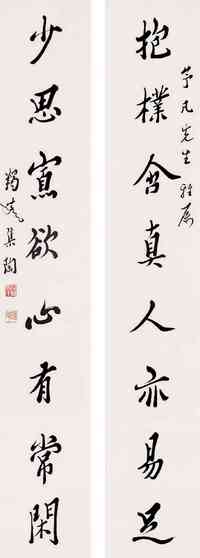 抱樸含真人亦易足
凡先生雅屬
少思寡欲心有常閑
集陶